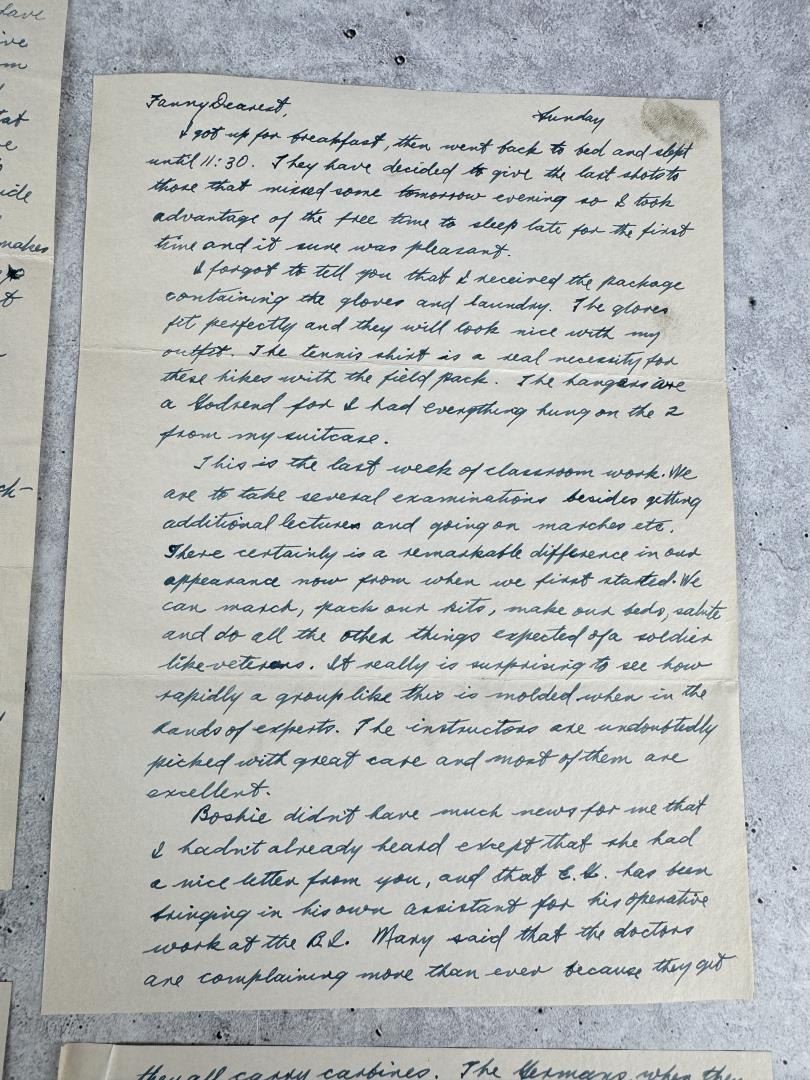 have
ive
om
tat
e
ide
makes
t
ch-
Fanny Dearest,
Sunday
I got up for breakfast, then went back to bed and slept
until 11:30. They have decided to give the last shots to
those that missed some tomorrow evening so I took
advantage of the free time to sleep late for the first
time and it sure was pleasant.
I forgot to tell you that I received the package
containing the gloves and laundry. The gloves
fit perfectly and they will look nice with my
outfit. The tennis shirt is a real necessity for
these hikes with the field pack. The hangers are
a Godsend for I had everything hung on the 2
from my suitcase.
This is the last week of classroom work. We
are to take several examinations besides getting
additional lectures and going on marches etc.
There certainly is a remarkable difference in our
appearance now from when we first started. We
can march, pack our kits, make our beds, salute
and do all the other things expected of a soldier
like veterans. It really is surprising to see how
rapidly a group like this is molded when in the
hands of experts. The instructors are undoubtedly
picked with great care and most of them are
excellent.
Boshie didn't have much news for me that
I hadn't already heard except that she had
a nice letter from you, and that E.G. has been
bringing in his own assistant for his operative
work at the B.I. Mary said that the doctors
are complaining more than ever because they get
they all carry carbines. The Germans when the